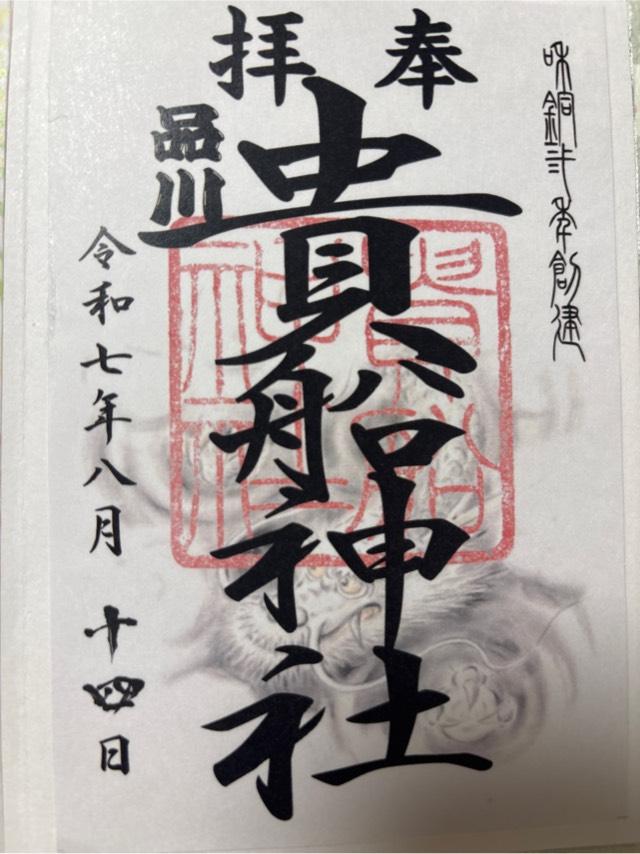 和銅弐年創建
奉拝
貴船神社
品川
令和七年八月 十四日